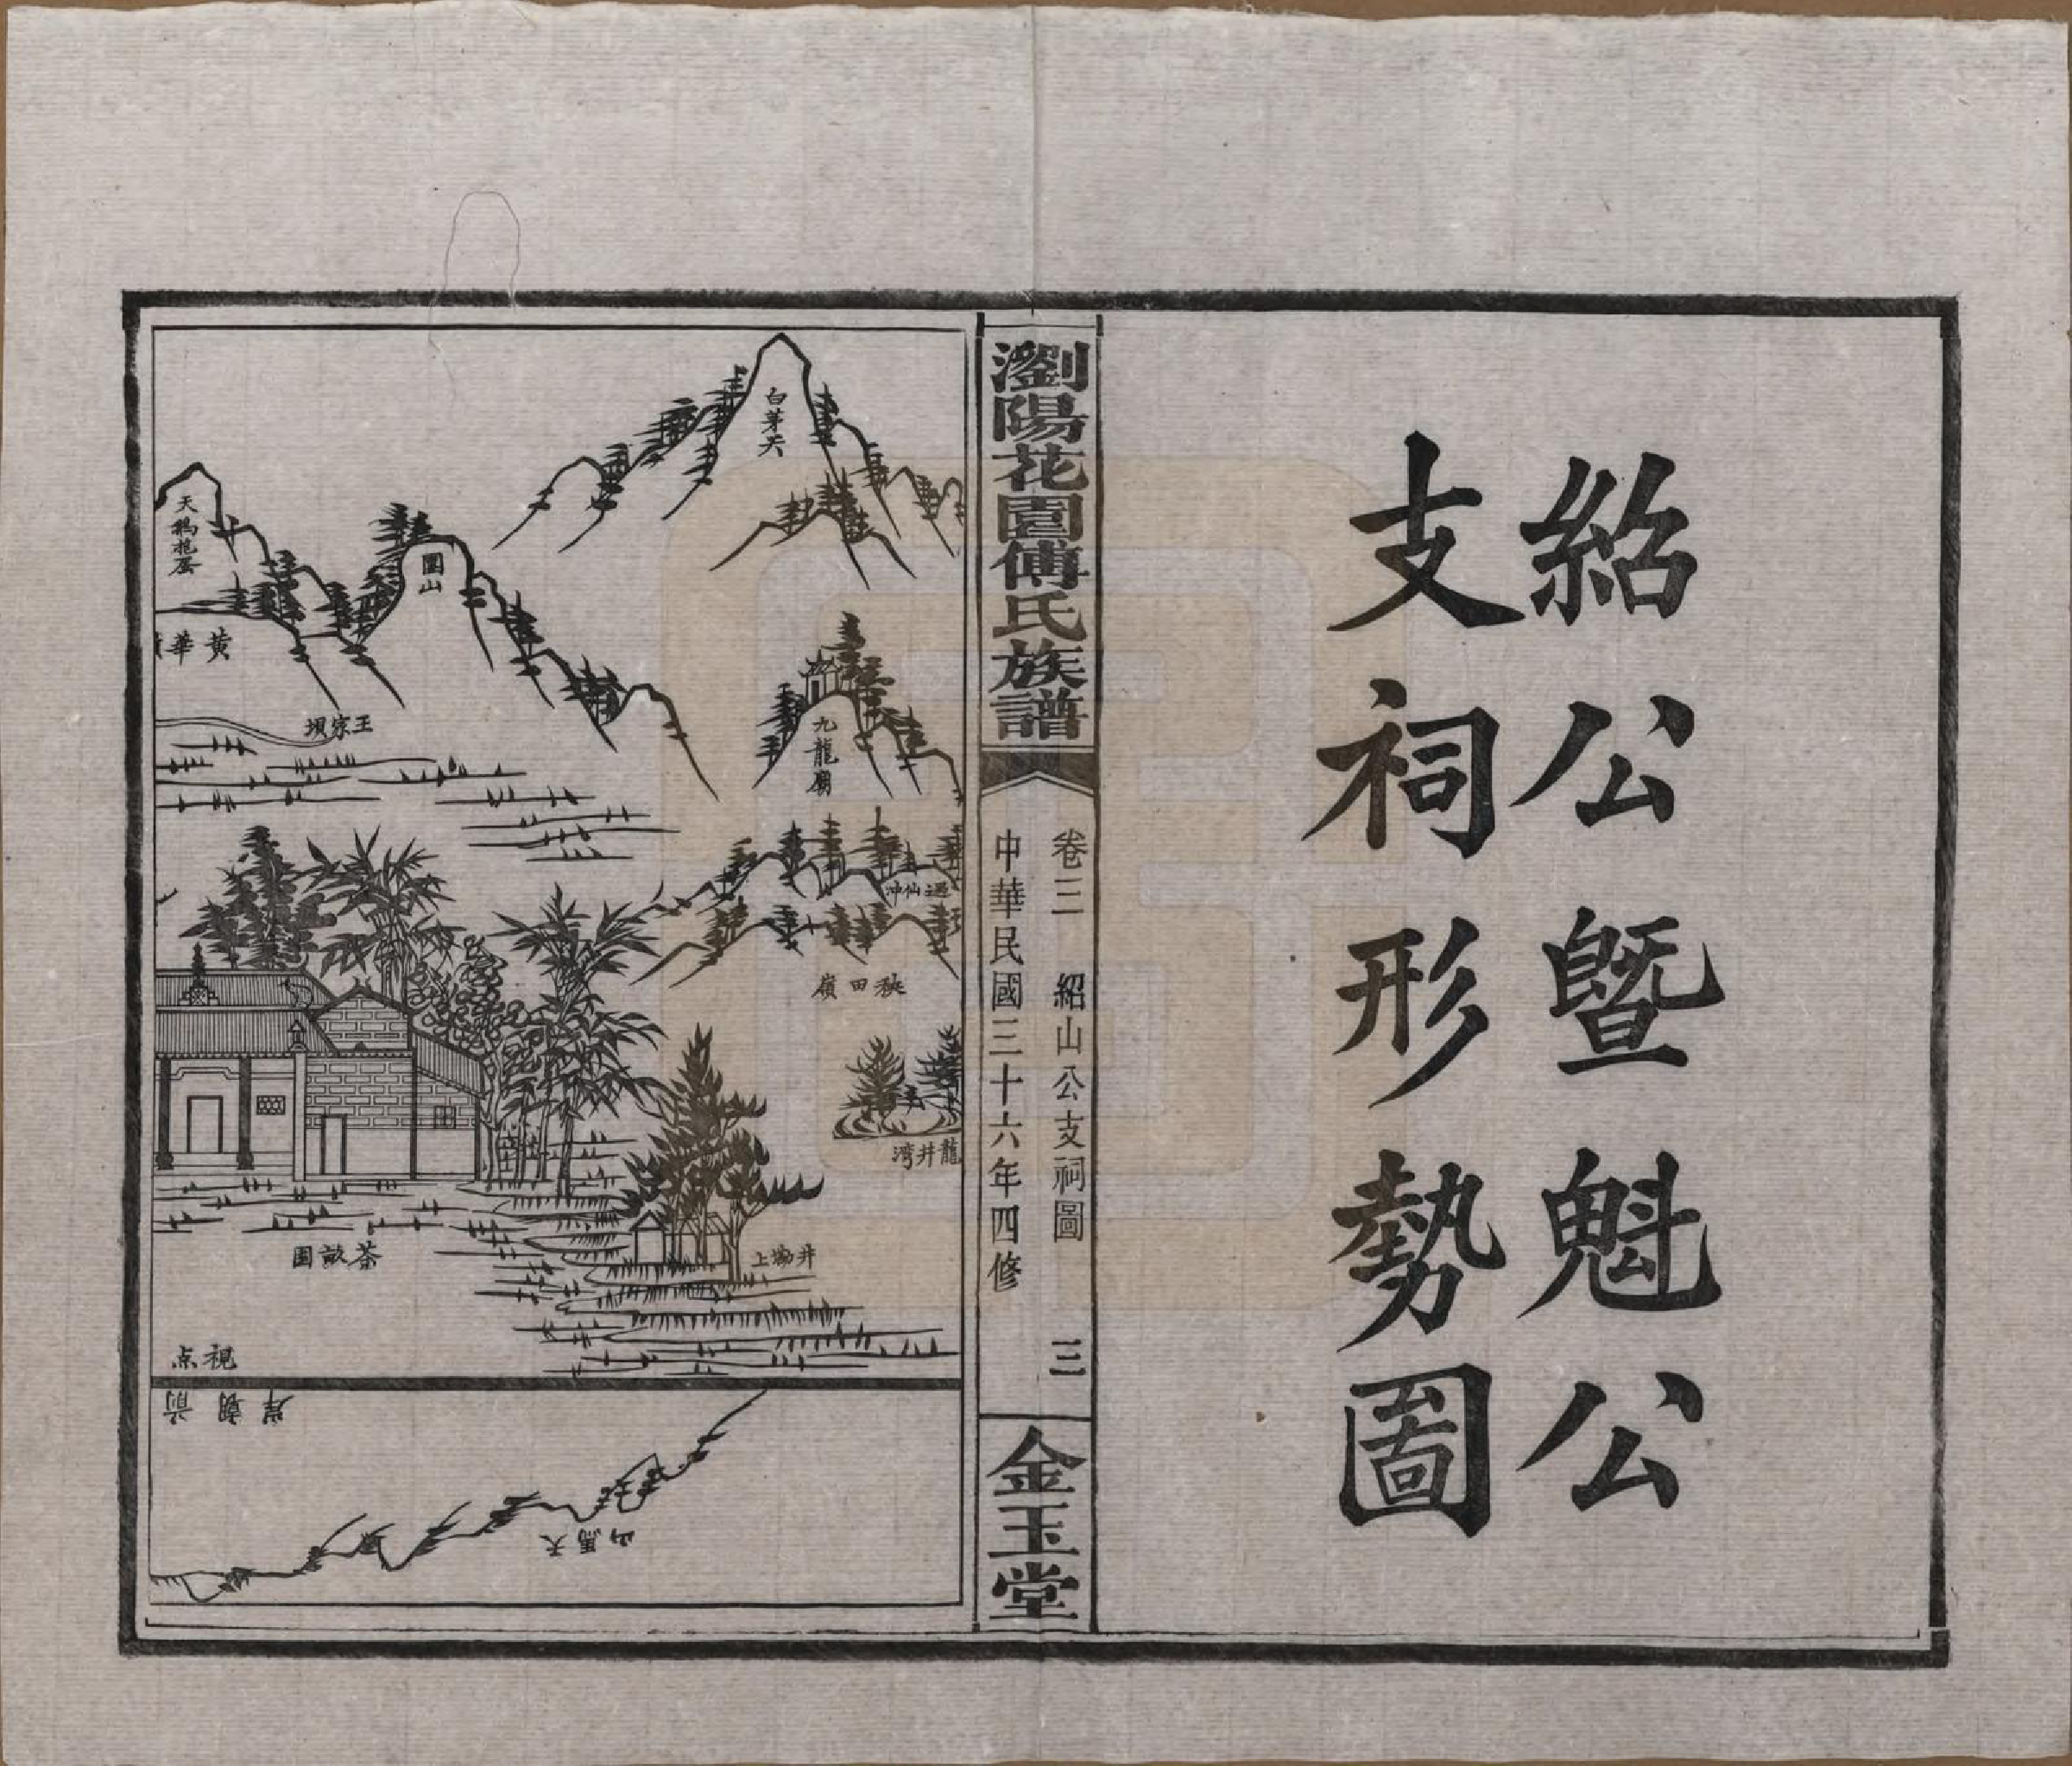 紹公暨魁公
支祠形勢圖
瀏陽花園傅氏族譜
卷三 紹山公支祠圖 三
中華民國三十六年四修
金玉堂
白茅尖
天鵝抱蛋
圓山
黃華
王家垻
九龍廟
過仙冲
秧田嶺
龍井湾
茶畝園
井塅上
視点
前朝岸
天馬山